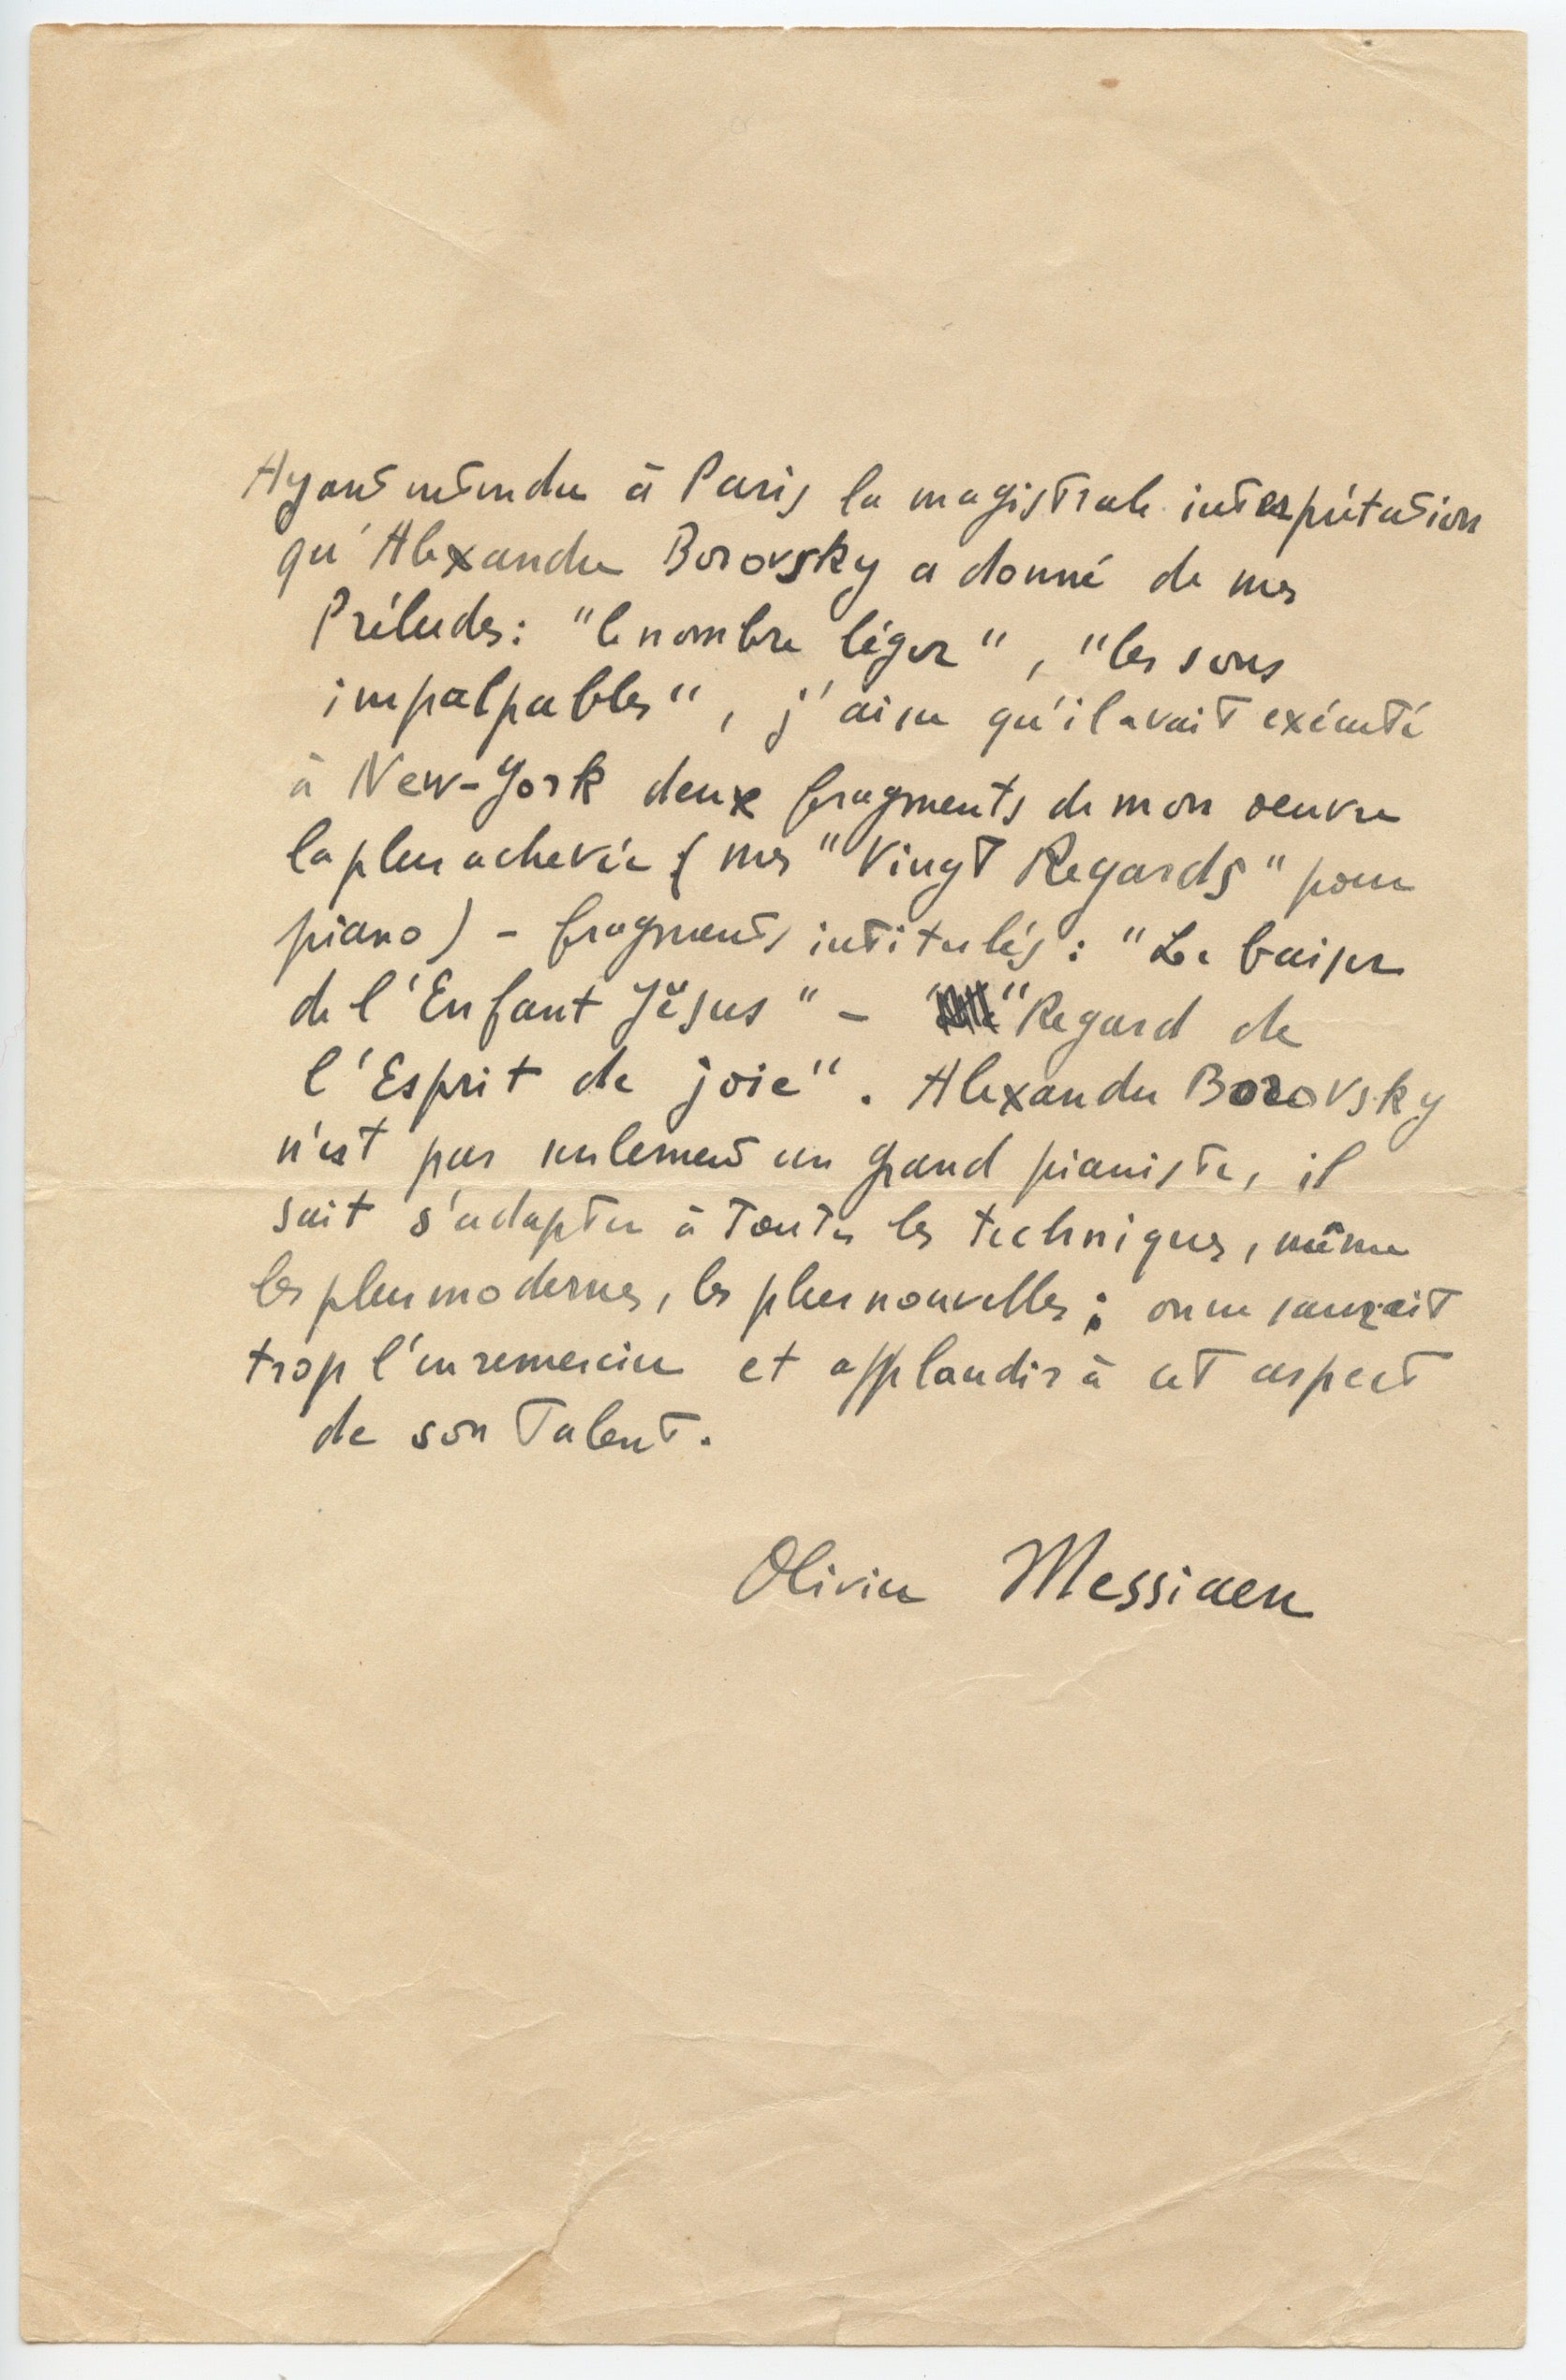 Ayant entendu à Paris la magistrale interprétation
qu'Alexandre Borovsky a donné de mes
Préludes: "le nombre léger", "les sons
impalpables", j'ai su qu'il avait exécuté
à New-York deux fragments de mon oeuvre
la plus achevée (mes "Vingt Regards" pour
piano) - fragments intitulés: "Le baiser
de l'Enfant Jésus" - "Regard de
l'Esprit de joie". Alexandre Borovsky
n'est pas seulement un grand pianiste, il
sait s'adapter à toutes les techniques, même
les plus modernes, les plus nouvelles; on ne saurait
trop l'en remercier et applaudir à cet aspect
de son talent.
Olivier Messiaen